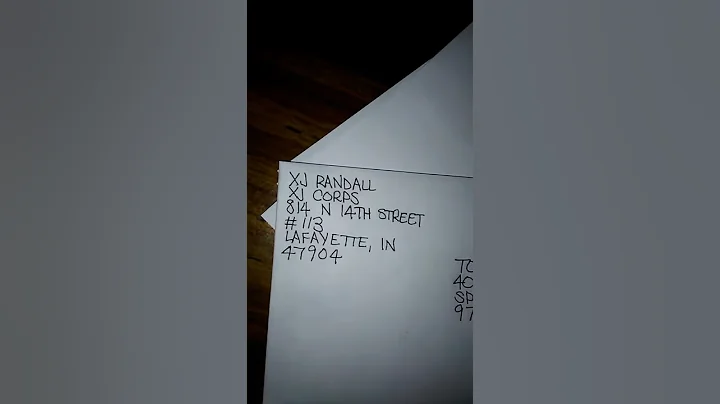 XJ RANDALL
XJ CORPS
814 N 14TH STREET
#113
LAFAYETTE, IN
47904
TO
40
SP
97